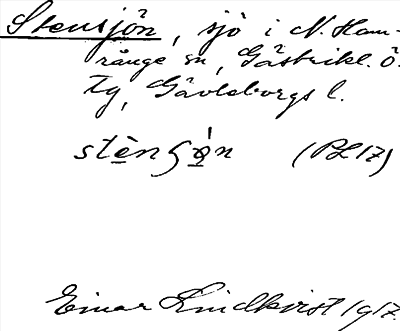 Stensjön, sjö i N. Ham-
rånge sn, Gästrikl. ö.
tg, Gävleborgs l.
stèn (PL 17)
Einar Lindkvist 1917.